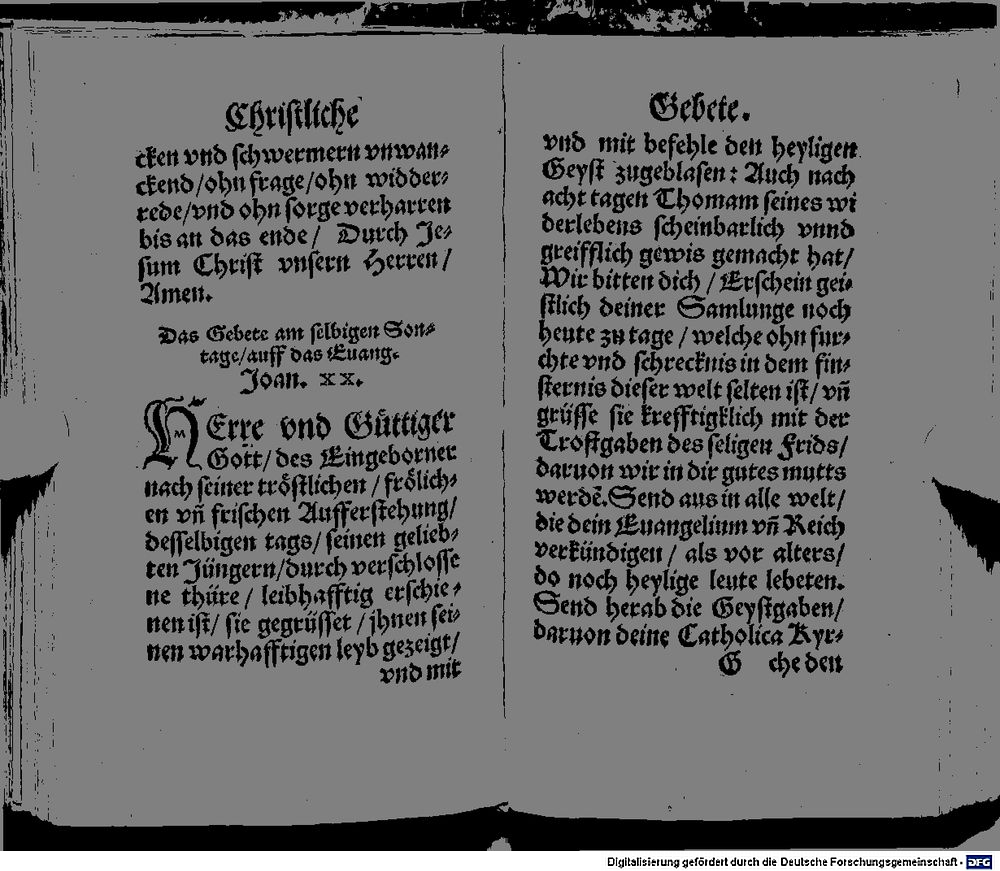 Christliche
cken vnd schwermern vnwan⸗
ckend/ohn frage/ohn widder⸗
rede/vnd ohn sorge verharren
bis an das ende/ Durch Je⸗
sum Christ vnsern Herren/
Amen.
Das Gebete am selbigen Son⸗
tage/auff das Euang.
Joan. xx.
HErre vnd Güttiger
Gott/des Eingeborner
nach seiner tröstlichen/frölich⸗
en vn̄ frischen Aufferstehung/
desselbigen tags/seinen gelieb⸗
ten Jüngern/durch verschlosse
ne thüre/ leibhafftig erschie⸗
nen ist/ sie gegrüsset/jhnen sei⸗
nen warhafftigen leyb gezeigt/
vnd mit
Gebete.
vnd mit befehle den heyligen
Geyst zugeblasen: Auch nach
acht tagen Thomam seines wi
derlebens scheinbarlich vnnd
greifflich gewis gemacht hat/
Wir bitten dich/Erschein gei⸗
stlich deiner Samlunge noch
heute zu tage/welche ohn fur⸗
chte vnd schrecknis in dem fin⸗
sternis dieser welt selten ist/vn̄
grüsse sie krefftigklich mit der
Trostgaben des seligen Frids/
daruon wir in dir gutes mutts
werdē.Send aus in alle welt/
die dein Euangelium vn̄ Reich
verkündigen/ als vor alters/
do noch heylige leute lebeten.
Send herab die Geystgaben/
daruon deine Catholica Kyr⸗
G che den
Digitalisierung gefördert durch die Deutsche Forschungsgemeinschaft - DFG